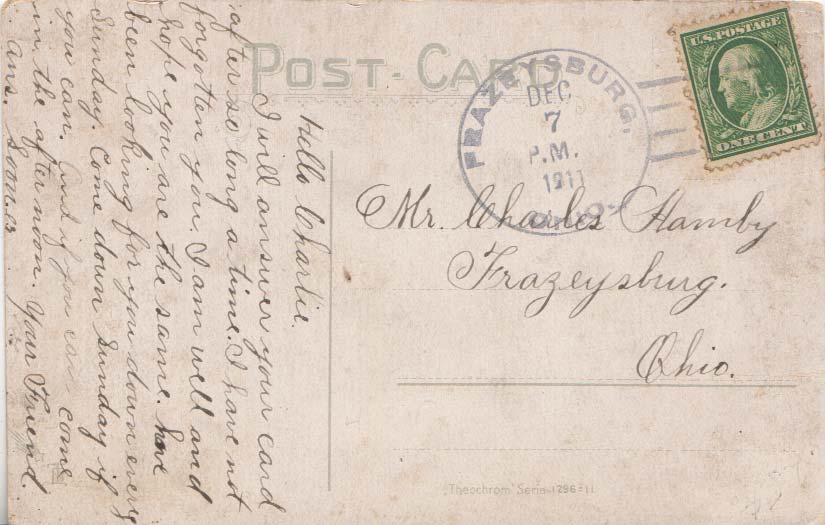 POST-CARD
FRAZEYSBURG,
DEC
7
P.M.
1911
OHIO.
U.S. POSTAGE
ONE CENT
Mr. Charles Hamby
Frazeysburg.
Ohio.
Hello Charlie.
I will answer your card
after so long a time. I have not
forgotten you. I am well and
hope you are the same. have
been looking for you down every
Sunday. Come down Sunday if
you can. and if you can come
in the after noon. Your Friend
Ans. Soon.
"Theochrom" Serie 1296-11